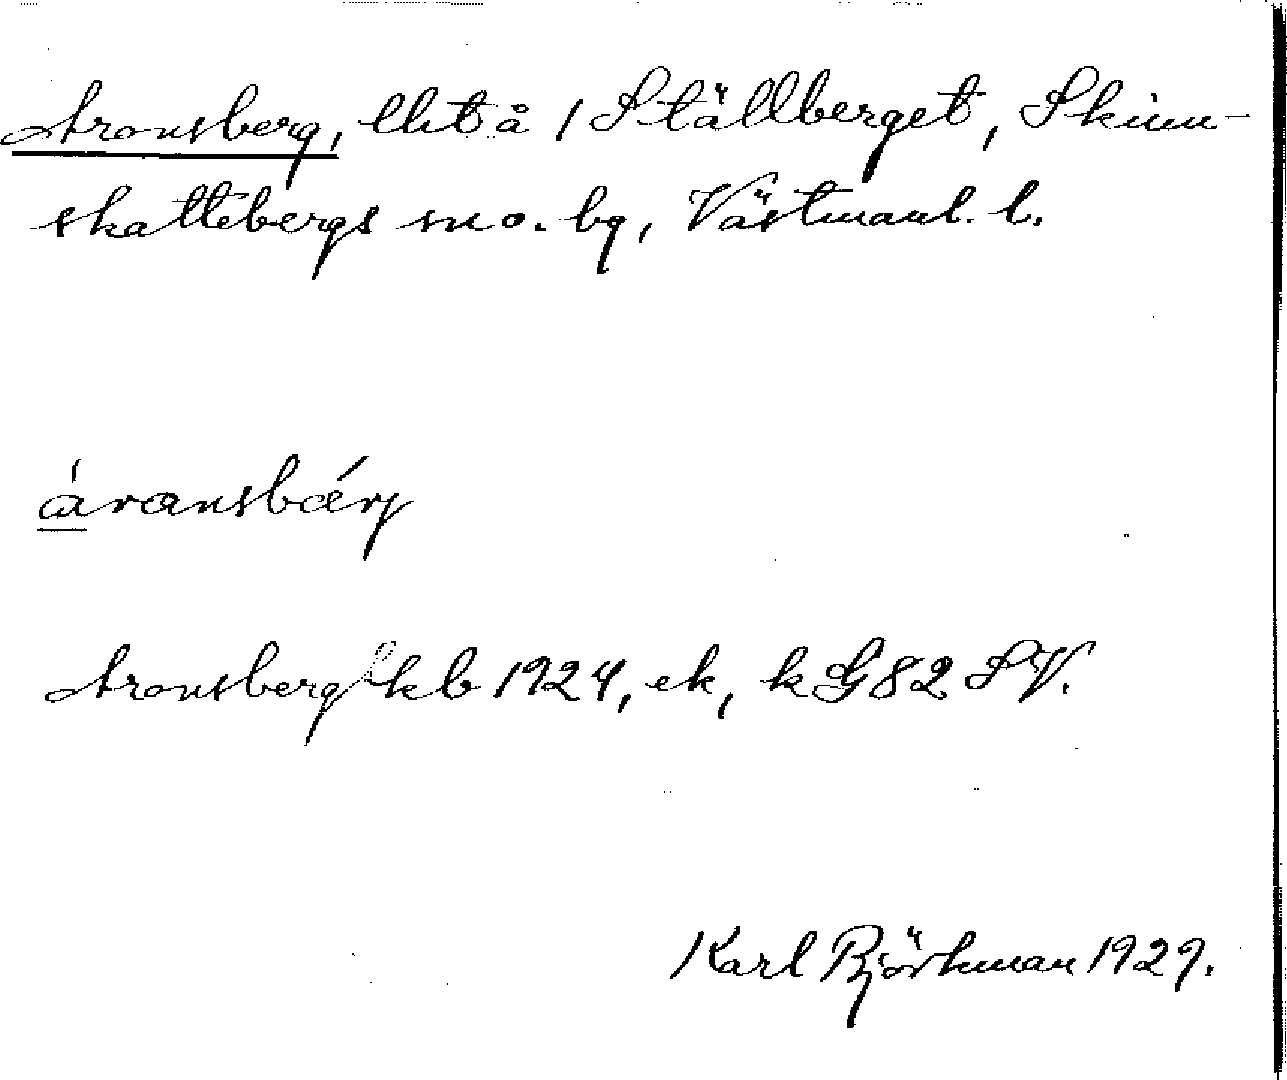 Aronsberg, lht å 1 Ställberget, Skinn-
skattebergs sn o. bg, Västmanl. l.
áransbǽrj
Aronsberg kb 1924, ek, k G82 SV.
Karl Björkman 1929.